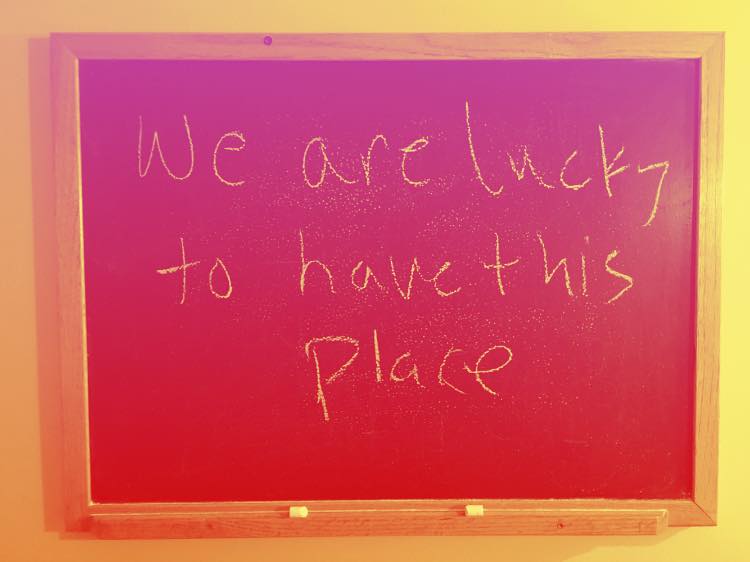 We are lucky
to have this
place